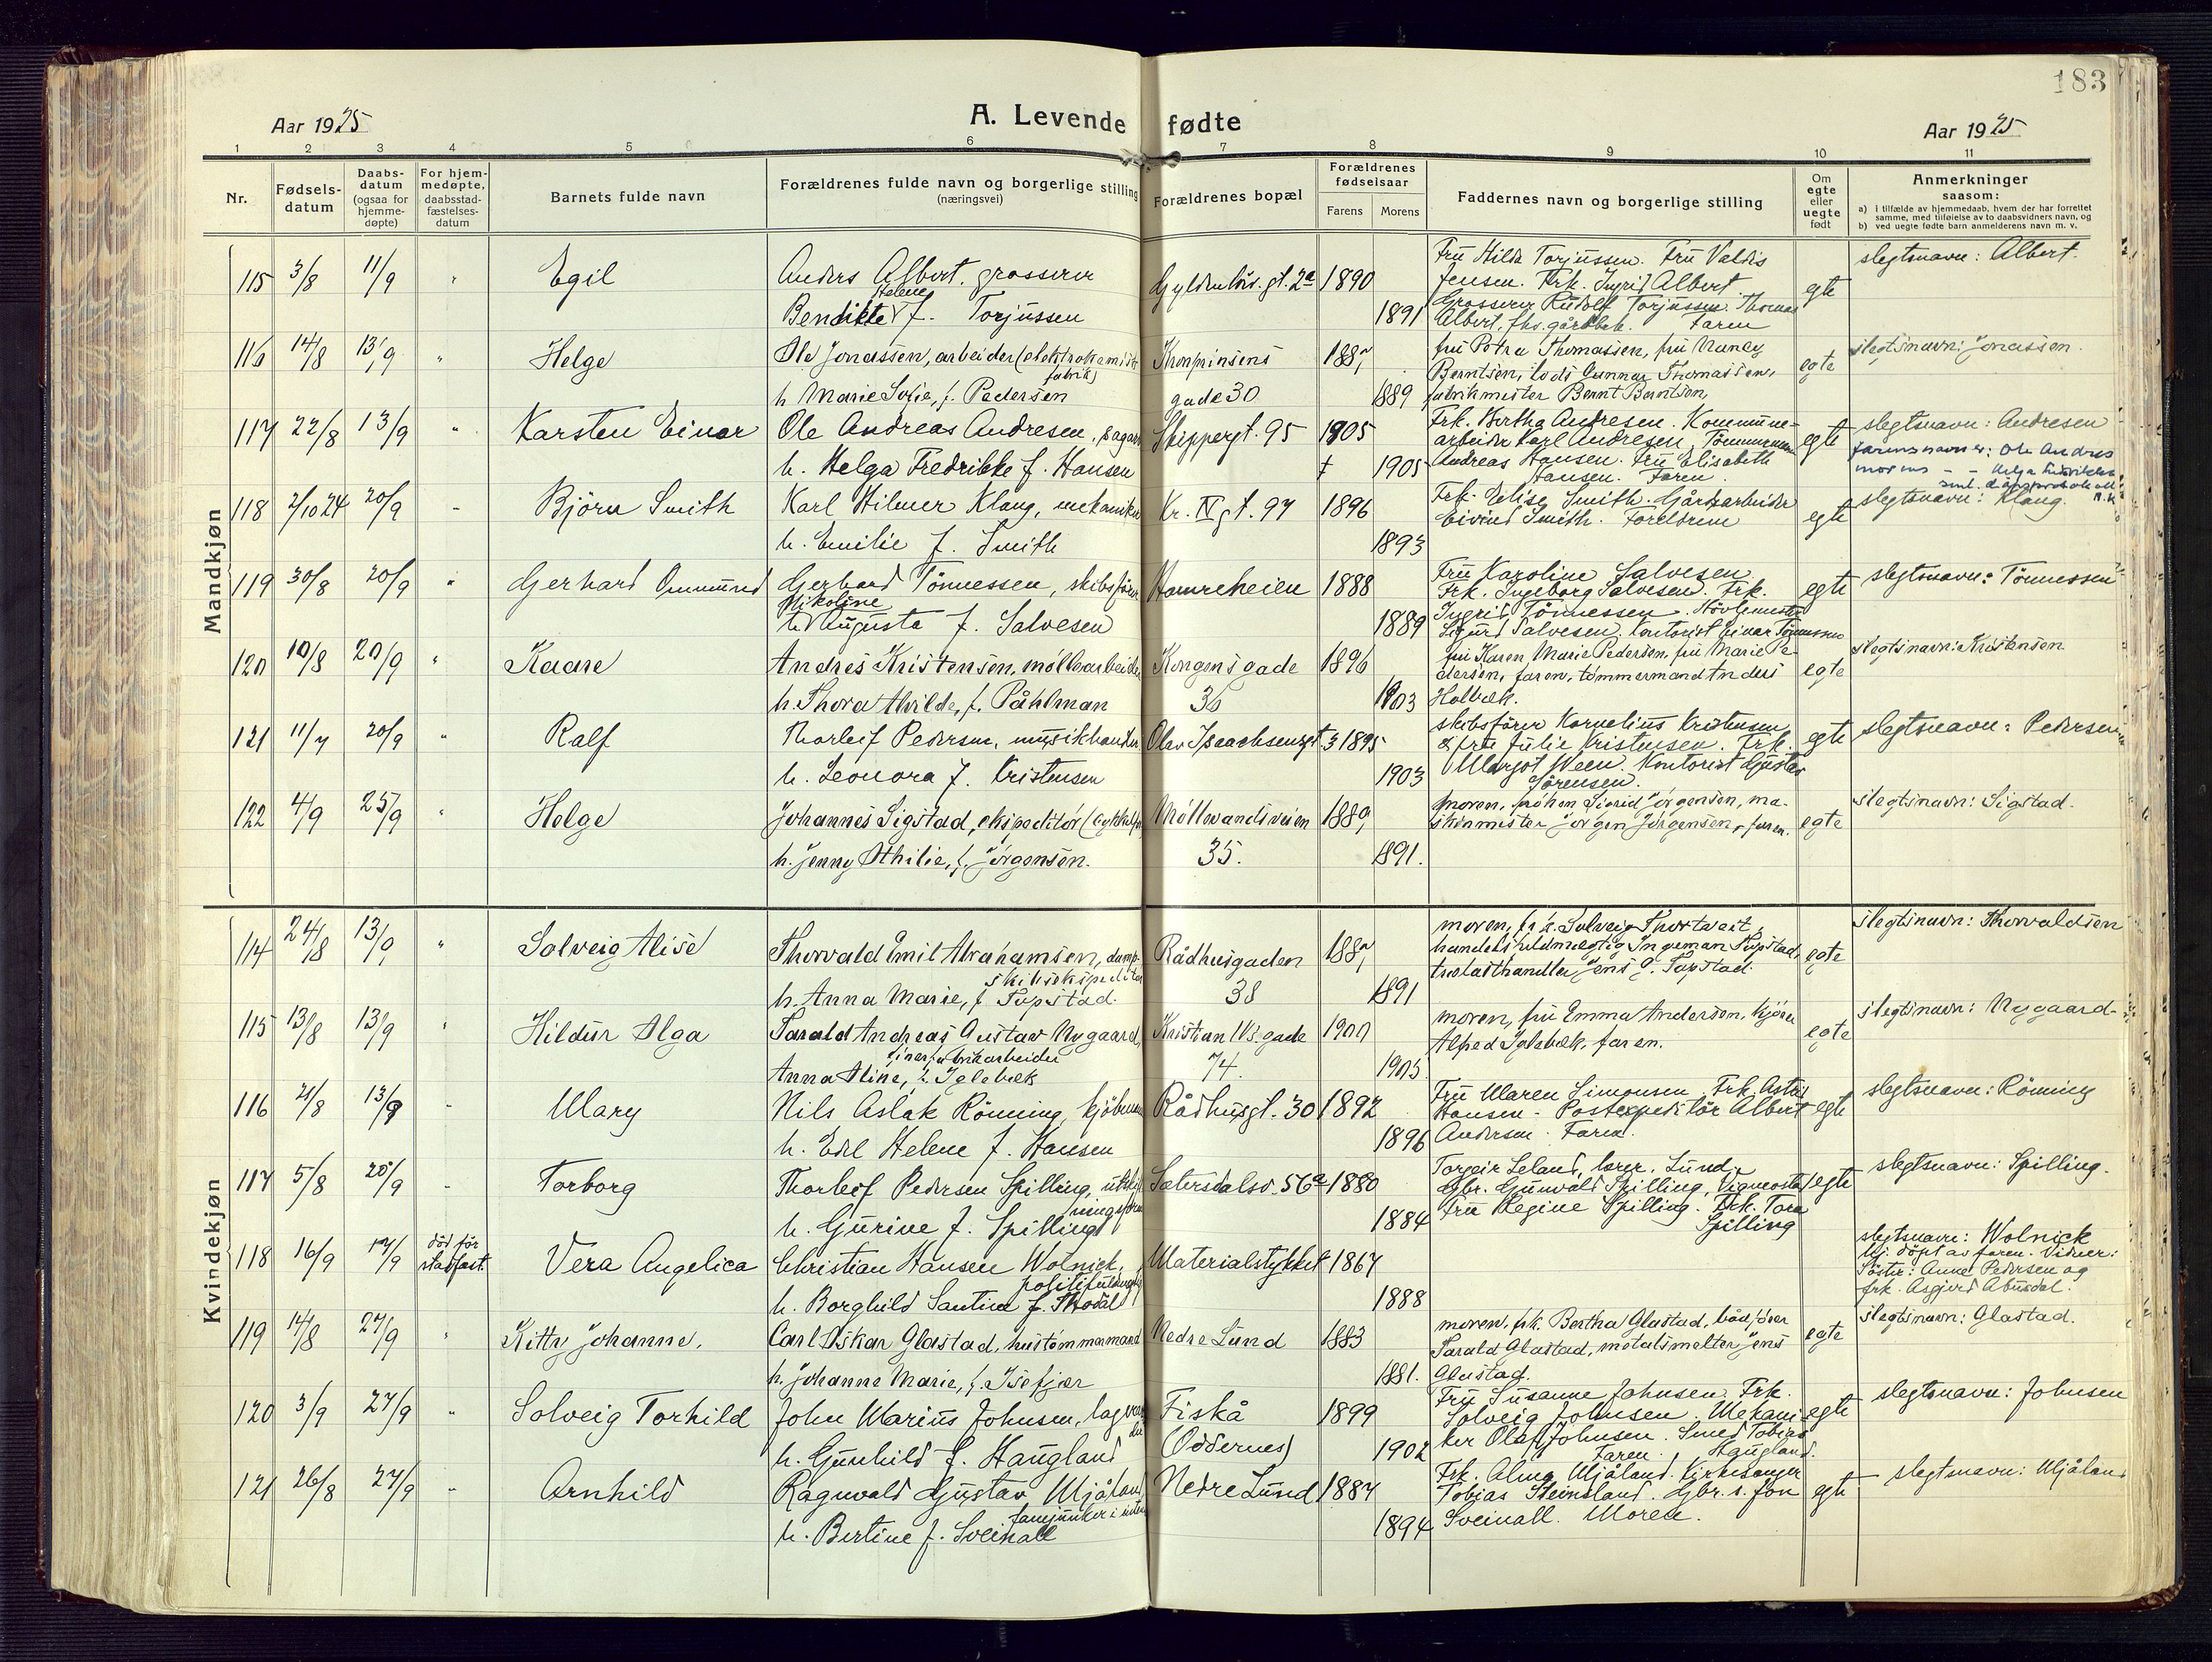 183
Aar 1925
A. Levende fødte
Aar 1925
1 2 3 4 5 6 7 8 9 10 11
Nr.
Fødsels-
datum
Daabs-
datum
(ogsaa for
hjemme-
døpte)
For hjem-
medøpte,
daabsstad-
fæstelses-
datum
Barnets fulde navn
Forældrenes fulde navn og borgerlige stilling
(næringsvei)
Forældrenes bopæl
Forældrenes
fødselsaar
Farens Morens
Faddernes navn og borgerlige stilling
Om
egte
eller
uegte
født
Anmerkninger
saasom:
a) i tilfælde av hjemmedaab, hvem der har forrettet
samme, med tilføielse av to daabsvidners navn, og
b) ved uegte fødte barn anmelderens navn m. v.
Mandkjøn
115 3/8 11/9 " Egil
Anders Albert, grosserer
Helene
Bendikte f. Torjussen
Gyldenløvs. gt. 2a 1890
1891
Fru Hilda Torjussen. Fru Valdis
Jensen. Frk. Ingrid Albert
Grosserer Rudolf Torjussen. Thomas
Albert, fhv. gårdbek. Faren
egte
slegtsnavn: Albert.
116 14/8 13/9 " Helge
Ole Jonassen, arbeider (elektrokemisk
fabrik)
h. Marie Sofie, f. Pedersen
Kronprinsens
gade 30
1889
fru Petra Thomassen, fru Nancy
Berntsen, lods Gunnar Thomassen,
fabrikmester Bernt Berntsen,
egte
slegtsnavn: Jonassen.
117 22/8 13/9 " Karsten Einar
Ole Andreas Andresen,
h. Helga Fredrikke f. Hansen
Skippergt. 95 1905
† 1905
Frk. Bertha Andresen. Kommune-
arbeider Karl Andresen, Tømmermann
Andreas Hansen. Fru Elisabeth
Hansen. Faren.
egte
slegtsnavn: Andresen
farens navn er: Ole Andres
morens - - Helga Fredrikke
118 2/10 24 20/9 - Bjørn Smith
Karl Hilmer Klang, mekaniker
h. Emilie f. Smith
Kr. IV gt. 97 1896
1893
Frk. Elise Smith. Gårdsarbeider
Eivind Smith. Foreldrene
egte
slegtsnavn: Klang.
119 30/8 20/9 " Gerhard Ommund
Gerhard Tønnessen, skibsfører
Nikoline
h. Augusta f. Salvesen
Hamreheien 1888
1889
Fru Karoline Salvesen
Frk. Ingeborg Salvesen. Frk.
Ingrid Tønnessen.
Sigurd Salvesen. Kontorist Einar Tønnessen
egte
slegtsnavn: Tønnessen
120 10/8 20/9 " Kaare
Andreas Kristensen, møllearbeider
h. Thora Alvilde, f. Påhlman
Kongensgade
36
1896
1903
fru Karen Marie Pedersen, fru Marie Pe-
dersen, faren, tømmermand Anders
Holbæk.
egte
slegtsnavn: Kristensen
121 11/7 20/9 " Ralf
Thorleif Pedersen, musikhandler
h. Leonora f. Kristensen
Olav Isaachsensgt 3 1895
1903
skibsfører Kornelius Kristensen
& fru Julie Kristensen. Frk.
Margot Ween. Kontorist Gustav
Sørensen.
egte
slegtsnavn: Pedersen
122 4/9 25/9 " Helge
Johannes Sigstad, ekspeditør
h. Jenny Othilie, f. Jørgensen.
Møllevandsveien
35.
1889
1891.
moren, frøken Sigrid Jørgensen, ma-
skinmester Jørgen Jørgensen, faren.
egte
slegtsnavn: Sigstad.
Kvindekjøn
114 24/8 13/9 " Solveig Alise
Thorvald Emil Abrahamsen, damp-
skibsekspeditør
h. Anna Marie, f. Tupstad.
Rådhusgaden
38
1891
moren, frk. Solveig Thortveit,
handelsfuldmægtig Ingeman Tupstad,
trælasthandler Jens G. Tupstad.
egte
slegtsnavn: Thorvaldsen
115 13/8 13/9 " Hildur Olga
Tarald Andreas Gustav Nygaard,
finerfabrikarbeider
Anna Oline, f. Iglebæk
Kristian IVs. gade
74.
1900
1905
moren, fru Emma Andersen, kjører
Alfred Iglebæk, faren.
egte
slegtsnavn: Nygaard.
116 21/8 13/9 - Mary
Nils Aslak Rönning, kjøbmann
h. Edl Helene f. Hansen
Rådhusgt. 30 1892
1896
Fru Maren Simonsen. Frk. Astrid
Hansen - Postexpeditør Albert
Andersen. Faren.
egte
slegtsnavn: Rönning
117 5/8 20/9 - Torborg
Thorleif Pedersen Spilling,
h. Gurine f. Spilling
Setersdalsv. 56a 1880
1884
Torgeir Leland, lærer. Lund.
Gbr. Gunvald Spilling, Vigmostad
Fru Regine Spilling. Frk. Tora
Spilling
egte
slegtsnavn: Spilling.
118 16/9 17/9 död før
stadfæst. Vera Angelica
Christian Hansen Wolnick,
politifuldmægtig
h. Borghild Santine f. Skodal
Materialstykket 1867
1888
slegtsnavn: Wolnick
Hj. döpt av faren. Vidner:
Söster: Anne Pedersen og
frk. Asgjerd Abusdal.
119 14/8 27/9 " Kitty Johanne.
Carl Oskar Glastad, hustømmermand
h. Johanne Marie, f. Isefjær
Nedre Lund 1883
1881.
moren, frk. Bertha Glastad, bådfører
Tarald Glastad, metalsmelter Jens
Glastad.
egte
slegtsnavn: Glastad.
120 3/9 27/9 " Solveig Torhild
John Marius Johnsen,
h. Gunhild f. Haugland
Fiskå
(Oddernes)
1899
1902
Fru Susanne Johnsen. Frk.
Solveig Johnsen. Mekani-
ker Olaf Johnsen. Smed Tobias
Faren. Haugland.
egte
slegtsnavn: Johnsen
121 26/8 27/9 - Arnhild
Ragnvald Gustav Mjåland
fanejunker i
h. Bertine f. Sveinall
Nedre Lund 1887
1894
Frk. Alma Mjåland. Kirkesanger
Tobias Steinsland. Gbr. s. Jon
Sveinall. Moren.
egte
slegtsnavn: Mjåland